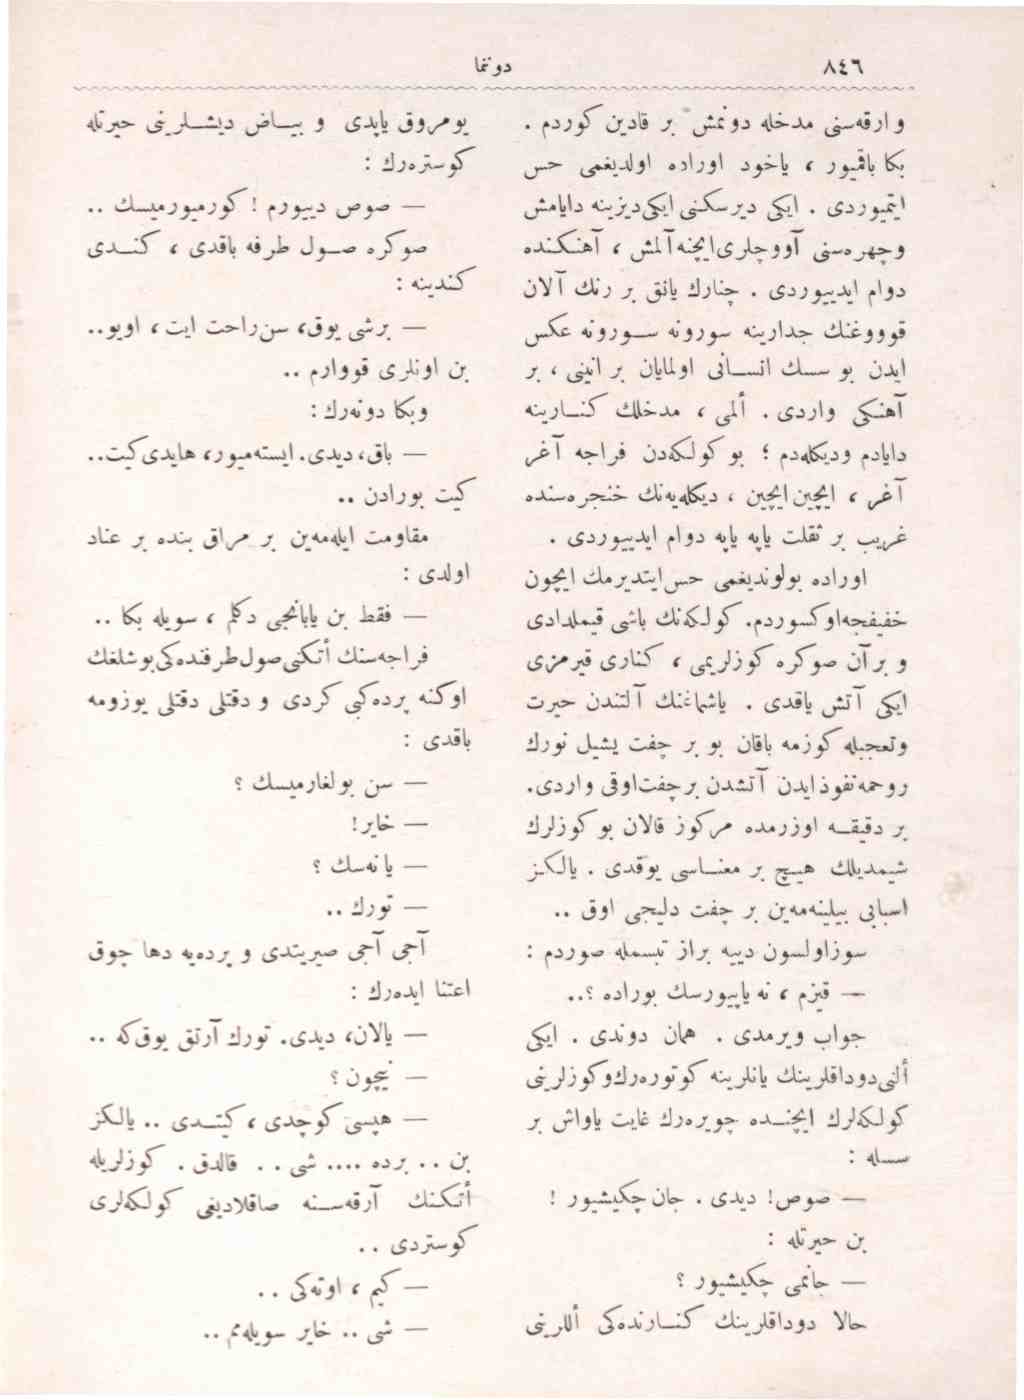 ٨٤٦
دوننما
و ارقه‌سنی مدخله دونمش بر قادین کوردم .
بکا باقمیور ، یاخود اوراده اولدیغمی حس
ایتمیوردی . ایکی دیرسکنی ایکی دیزینه دایامش
وچهره‌سنی آووچلری ایچنه آلمش ، آهنکنده
دوام ایدییوردی . چنارك یانق بر رنك آلان
قوووغنك جدارینه سورونه سورونه عکس
ایدن بو سسك انسانی اولمایان بر انینی ، بر
آهنکی واردی . ألمی ، مدخلك کنارینه
دایادم ودیکله‌دم ؛ بو کولکه‌دن فراجه آغر
آغر ، ایچین ایچین ، دیکله‌یه‌نك خنجره‌سنده
غریب بر ثقلت یاپه یاپه دوام ایدییوردی .
اوراده بولوندیغمی حس ایتدیرمك ایچون
خفیفجه اوکسوردم. کولکه‌نك باشی قیملدادی
و بر آن صوکره کوزلریمی ، کناری قیرمزی
ایکی آتش یاقدی . یاشماغنك آلتندن حیرت
وتعجبله کوزمه باقان بو بر چفت یشیل نورك
روحمه نفوذ ایدن آتشدن بر چفت اوقی واردی.
بر دقیقه اوزرمده مرکوز قالان بو کوزلرك
شیمدیلك هیچ بر معناسی یوقدی . یالکز
اسبابی بیلینه‌مه‌ین بر چفت دلیجی اوق ..
سوز اولسون دییه براز تبسمله صوردم :
— قیزم ، نه یاپیورسك بوراده ؟..
جواب ویرمدی . همان دوندی . ایکی
ألنی دوداقلرینك یانلرینه کوتوره‌رك وکوزلرینی
کولکه‌لرك ایچنده چویره‌رك غایت یاواش بر
سسله :
— صوص! دیدی . جان چکیشیور !
بن حیرتله :
— جانمی چکیشیور ؟
حالا دوداقلرینك کنارنده‌کی أللرینی
یومروق یاپدی و بیاض دیشلرینی حیرتله
کوستره‌رك :
— صوص دییورم ! کورمیورمیسك ..
صوکره صول طرفه باقدی ، کندی
کندینه :
— برشی یوق، سن راحت ایت ، اویو..
بن اونلری قووارم ..
وبکا دونه‌رك :
— باق، دیدی. ایسته‌میور، هایدی کیت..
کیت بورادن ..
مقاومت ایله‌مه‌ین بر مراق بنده بر عناد
اولدی :
— فقط بن یابانجی دکلم ، سویله بکا ..
فراجه‌سنك أتکنی صول طرفنده‌کی بوشلغك
اوکنه پرده کبی کردی و دقتلی دقتلی یوزومه
باقدی :
— سن بولغارمیسك ؟
— خایر!
— یا نه‌سك ؟
— تورك ..
آجی آجی صیریتدی و پرده‌یه دها چوق
اعتنا ایده‌رك :
— یالان، دیدی. تورك آرتق یوق که ..
— نیچون ؟
— هپسی کوچدی ، کیتدی .. یالکز
بن .. برده .... شی .. قالدق . کوزلریله
أتکنك آرقه‌سنه صاقلادیغی کولکه‌لری
کوستردی ..
— کیم ، اوته‌کی ..
— شی .. خایر سویله‌مم ..